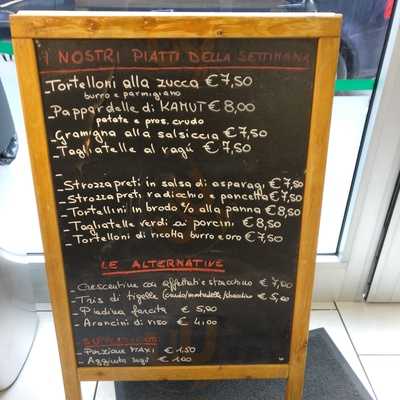 I NOSTRI PIATTI DELLA SETTIMANA
Tortelloni alla zucca € 7,50
burro e parmigiano
- Pappardelle di KAMUT € 8,00
patate e pros. crudo
- Gramigna alla salsiccia € 7,50
- Tagliatelle al ragú € 7,50
- Strozzapreti in salsa di asparagi € 7,50
- Strozzapreti, radicchio e pancetta € 7,50
- Tortellini in brodo % alla panna € 8,50
- Tagliatelle verdi ai porcini € 8,50
- Tortelloni di ricotta burro e oro € 7,50
LE ALTERNATIVE
- Crescentine con affettati e stracchino € 7,00
- Tris di tigelle (crudo/mortadella/stracchino) € 5,00
- Piadina farcita € 5,00
- Arancini di riso € 4,00
- Porzione MAXI € 1,50
- Aggiunta ragú € 1,00